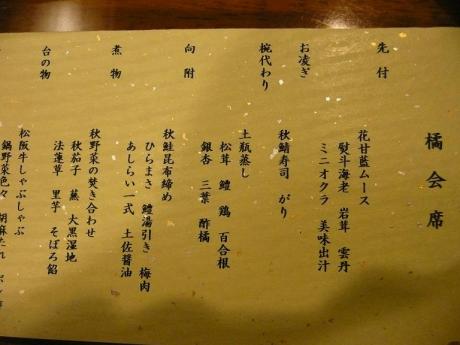 橘会席
先付
花甘藍ムース
熨斗海老 岩茸 雲丹
ミニオクラ 美味出汁
お凌ぎ
秋鯖寿司 がり
椀代わり
土瓶蒸し
松茸 鱧 鶏 百合根
銀杏 三葉 酢橘
向附
秋鮭昆布締め
ひらまさ 鱧湯引き 梅肉
あしらい一式 土佐醤油
煮物
秋野菜の焚き合わせ
秋茄子 蕪 大黒湿地
法蓮草 里芋 そぼろ餡
台の物
松阪牛しゃぶしゃぶ
鍋野菜色々 胡麻たれ